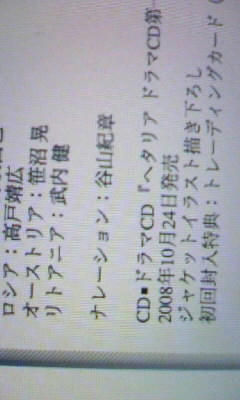 ロシア：高戸靖広
オーストリア：笹沼 晃
リトアニア：武内 健
ナレーション：谷山紀章
CD■ドラマCD『ヘタリア ドラマCD第一
2008年10月24日発売
ジャケットイラスト描き下ろし
初回封入特典：トレーディングカード（